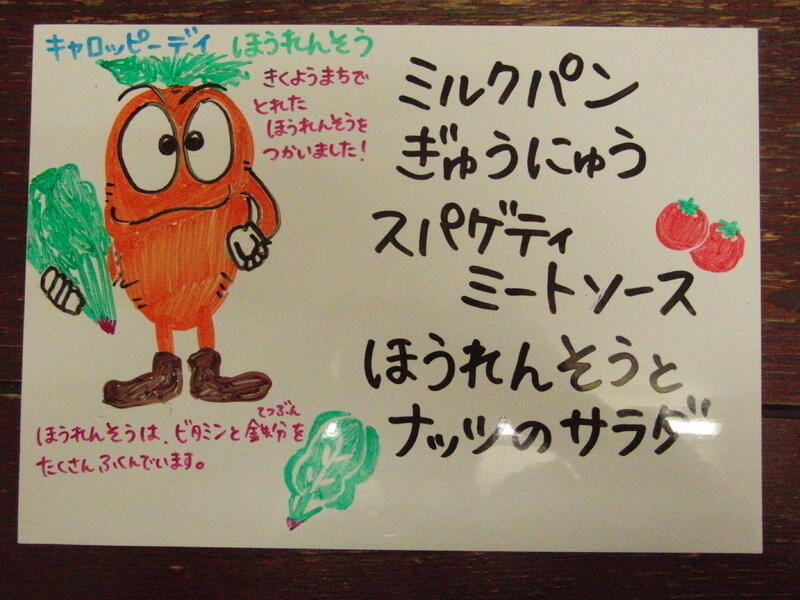 キャロッピーデイ ほうれんそう
きくようまちで
とれた
ほうれんそうを
つかいました!
ミルクパン
ぎゅうにゅう
スパゲティ
ミートソース
ほうれんそうと
ナッツのサラダ
てつぶん
ほうれんそうは、ビタミンと鉄分を
たくさんふくんでいます。